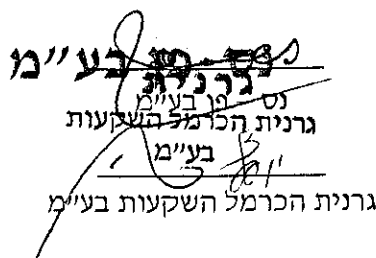 נס פן בע״מ
גרנית
נס פן בע״מ
גרנית הכרמל השקעות
בע״מ
גרנית הכרמל השקעות בע״מ